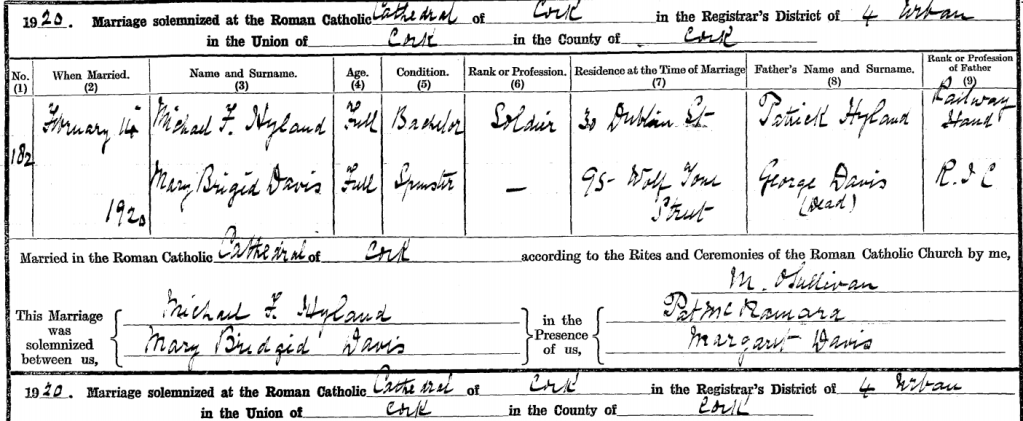 1920. Marriage solemnized at the Roman Catholic Cathedral of Cork in the Registrar's District of 4 Urban
in the Union of Cork in the County of Cork
No. (1) When Married. (2) Name and Surname. (3) Age. (4) Condition. (5) Rank or Profession. (6) Residence at the Time of Marriage (7) Father's Name and Surname. (8) Rank or Profession of Father (9)
182 February 14 1920
Michael F. Hyland Full Bachelor Soldier 30 Dublin St Patrick Hyland Railway Hand
Mary Brigid Davis Full Spinster — 95 Wolf Tone Street George Davis (Dead) R.I.C
Married in the Roman Catholic Cathedral of Cork according to the Rites and Ceremonies of the Roman Catholic Church by me,
M. O'Sullivan
This Marriage was solemnized between us, Michael F. Hyland
Mary Bridgid Davis
in the Presence of us, Pat McNamara
Margaret Davis
1920. Marriage solemnized at the Roman Catholic Cathedral of Cork in the Registrar's District of 4 Urban
in the Union of Cork in the County of Cork